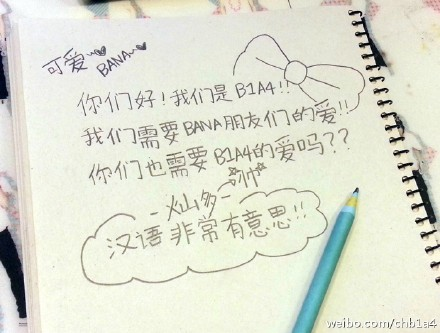 可爱~♥BANA~♥
你们好！我们是B1A4!!
我们需要BANA朋友们的爱!!
你们也需要B1A4的爱吗??
-灿多-
汉语非常有意思!!
weibo.com/chb1a4